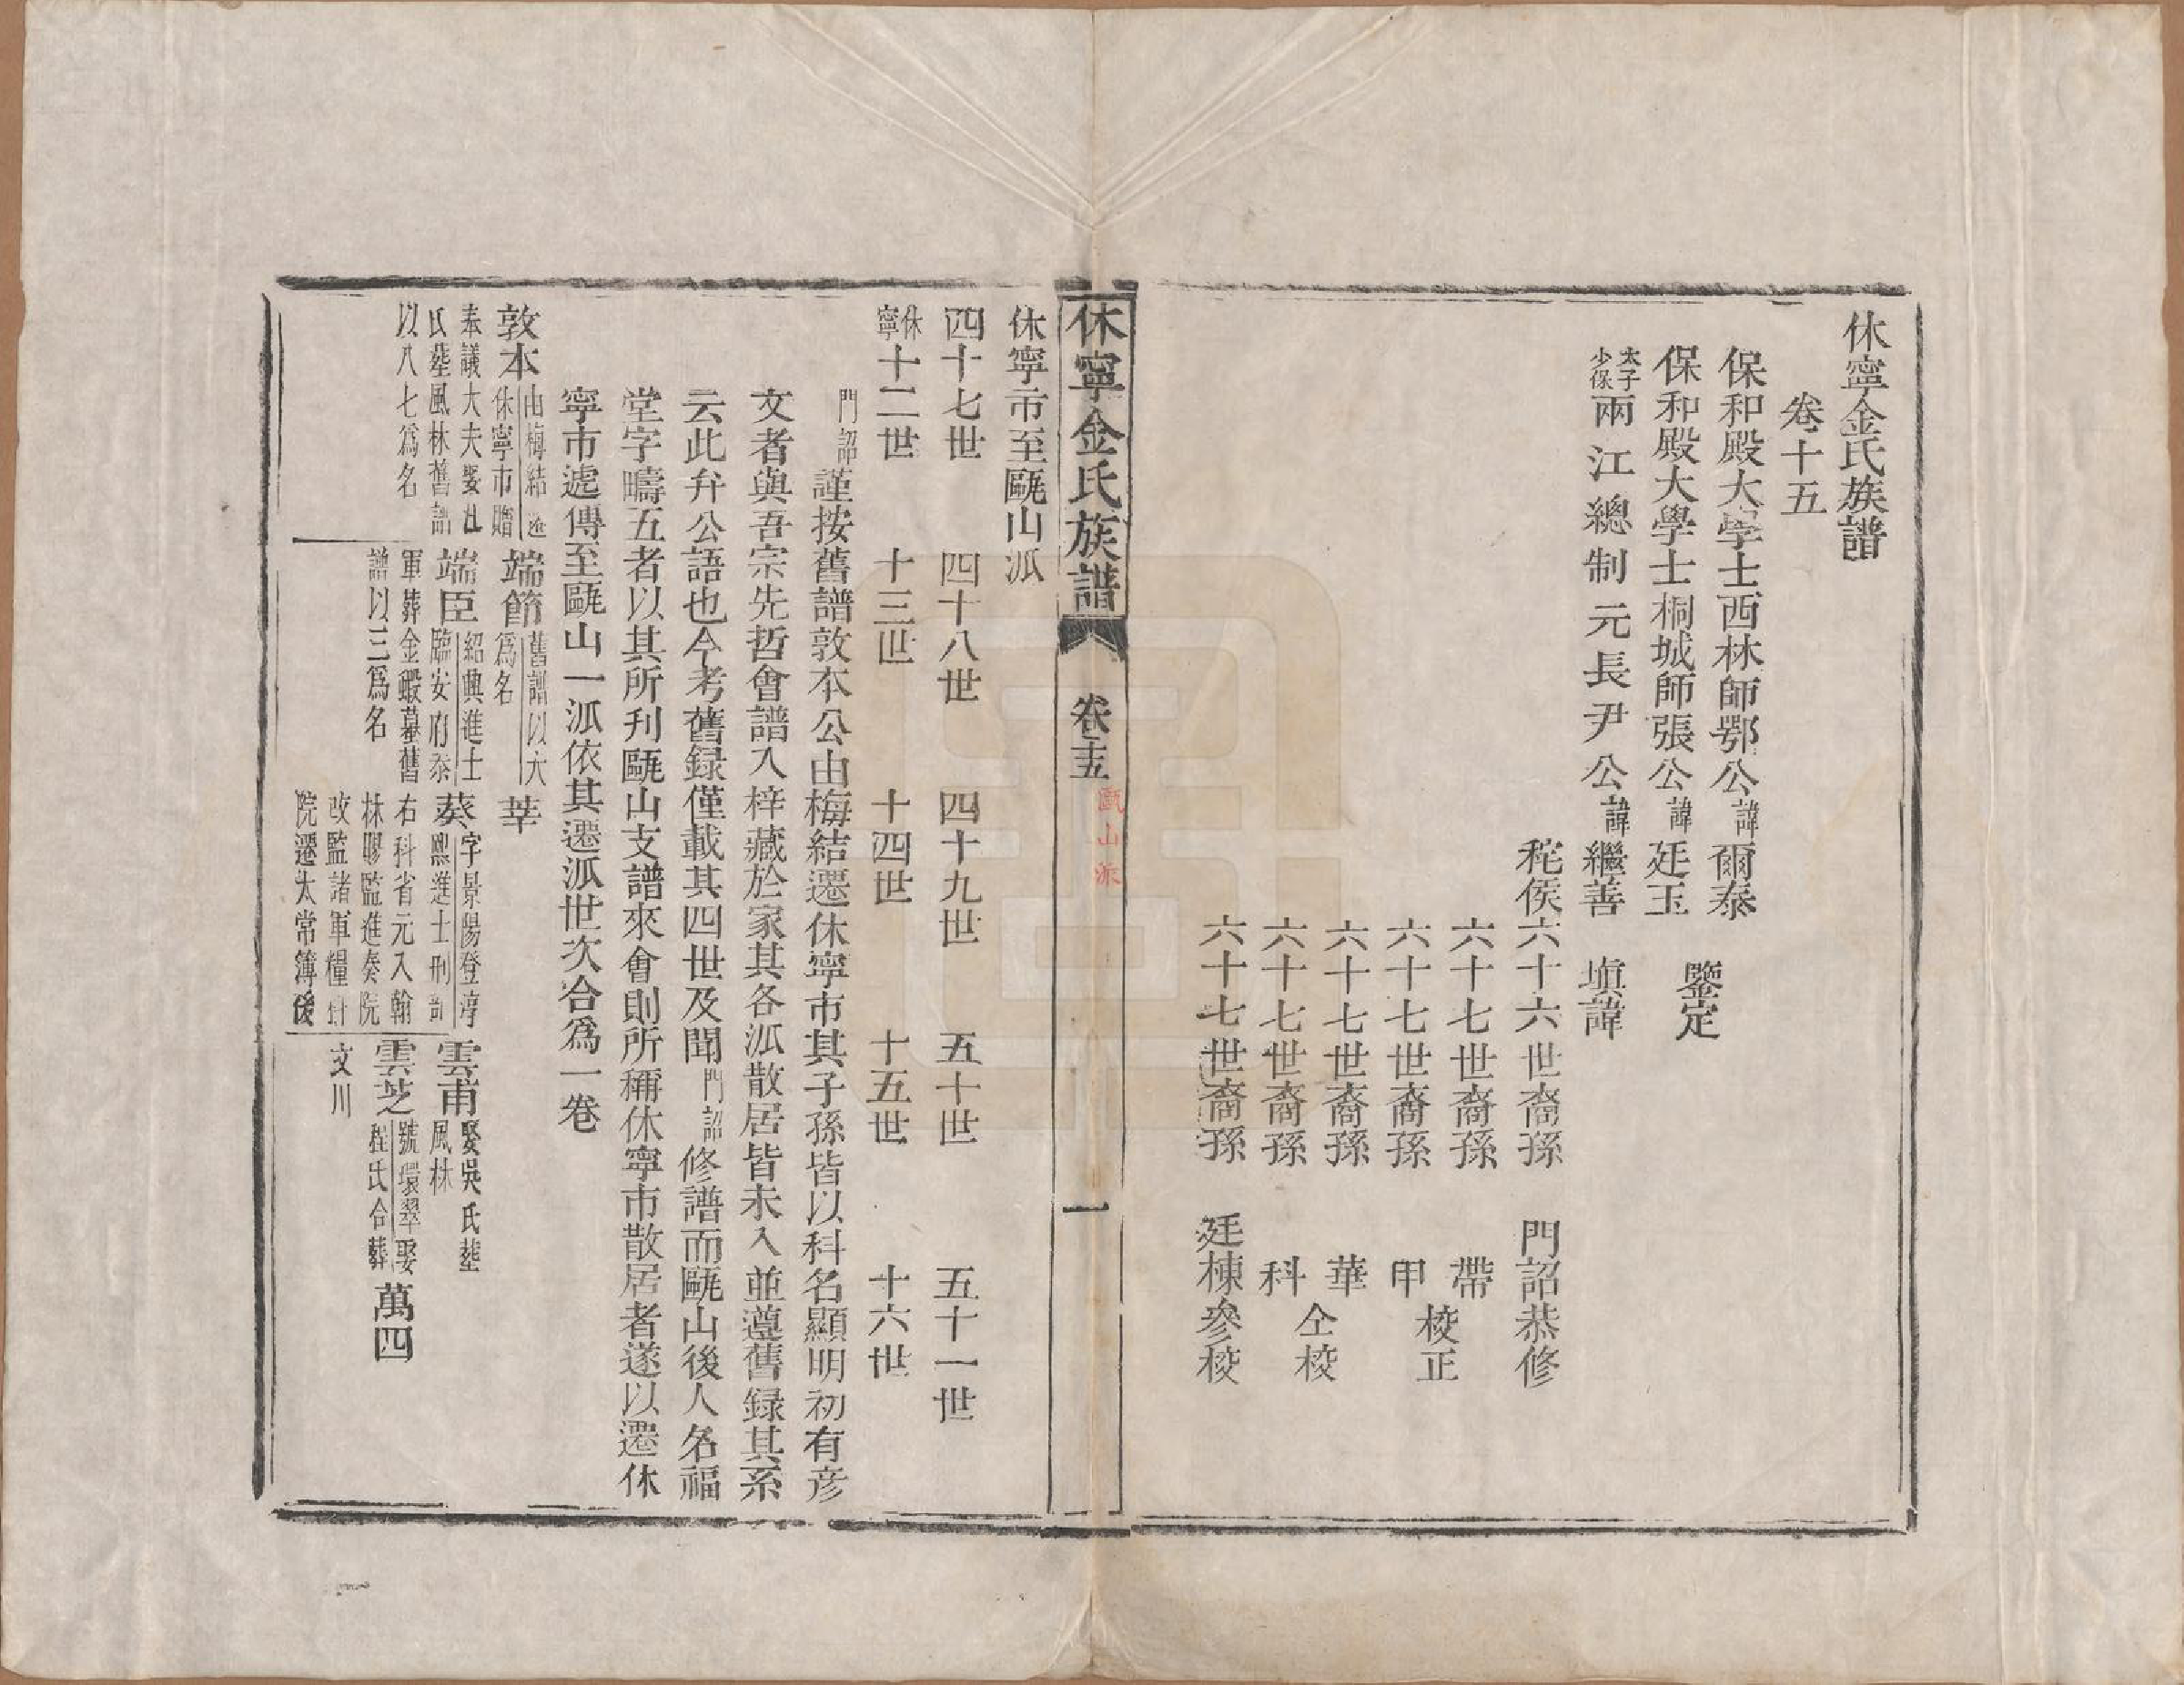 休寧金氏族譜
卷十五
保和殿大學士西林師鄂公諱爾泰
保和殿大學士桐城師張公諱廷玉
鑒定
太子少保兩江總制元長尹公諱繼善 填諱
秺侯六十六世裔孫 門詔恭修
六十七世裔孫 帶
六十七世裔孫 甲
校正
六十七世裔孫 華
六十七世裔孫 科
仝校
六十七世裔孫 廷棟參校
休寧金氏族譜 卷十五 甌山派 一
休寧市至甌山派
四十七世 四十八世 四十九世 五十世 五十一世
休寧十二世 十三世 十四世 十五世 十六世
門詔謹按舊譜敦本公由梅結遷休寧市其子孫皆以科名顯明初有彥
文者與吾宗先哲會譜入梓藏於家其各派散居皆未入並遵舊録其系
云此弁公語也今考舊録僅載其四世及聞門詔修譜而甌山後人名福
堂字疇五者以其所刋甌山支譜來會則所稱休寧市散居者遂以遷休
寧市遞傳至甌山一派依其遷派世次合爲一卷
敦本由梅結遷
休寧市贈
奉議大夫娶杜
氏葬風林舊譜
以八七爲名
端節舊譜以六
爲名
端臣紹興進士
臨安府叅
軍葬金緞墓舊
譜以三爲名
莘
葵字景陽登淳
熙進士刑部
右科省元入翰
林膠監進奏院
改監諸軍糧料
院遷太常簿後
雲甫娶吳氏葬
風林
雲芝號環翠娶
程氏合葬
文川
萬四